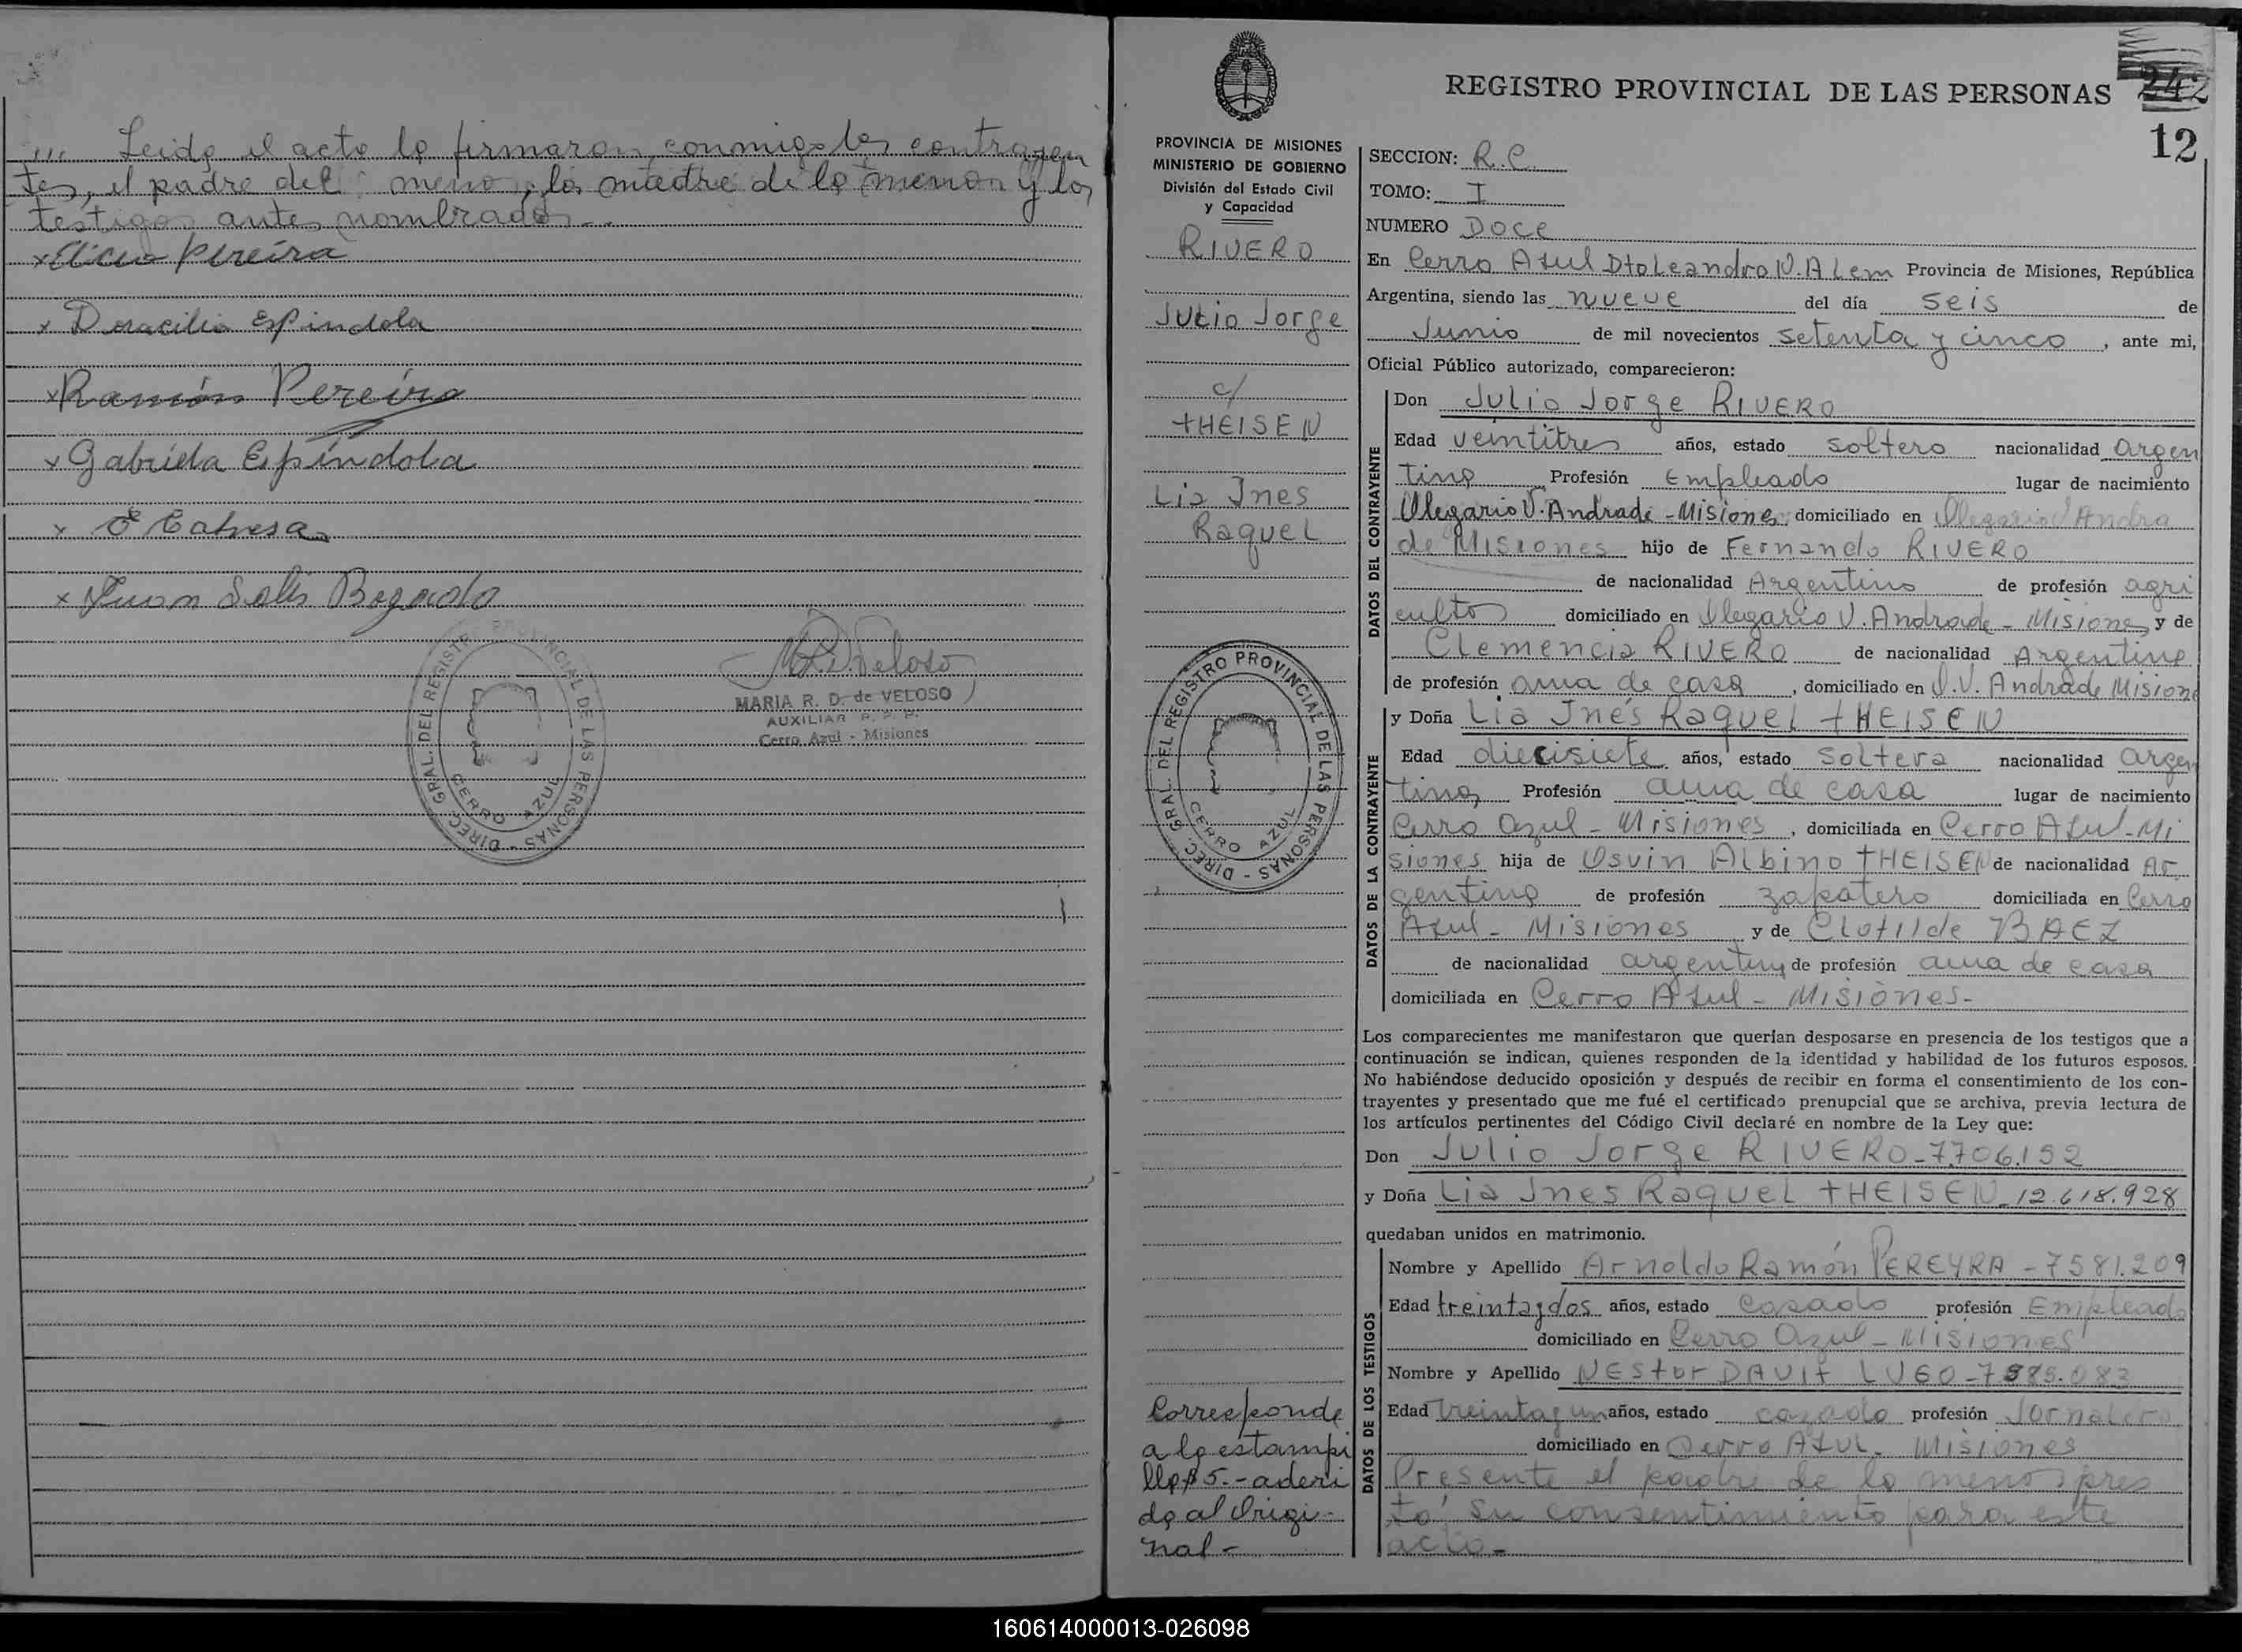 ,,,, Leida el acta la firmaron conmigo los contrayen
tes, el padre del menor, la madre de la menor y los
testigos antes nombrados.-
x Elicio Pereira
x Doracilia Espindola
x Ramón Pereira
x Gabriela Espíndola
x Juan Solis Bogado
M.R.D. Veloso
MARIA R. D. de VELOSO
AUXILIAR R. P. P.
Cerro Azul - Misiones
DIREC. GRAL. DEL REGISTRO PROVINCIAL DE LAS PERSONAS -
CERRO AZUL
REGISTRO PROVINCIAL DE LAS PERSONAS
242
12
PROVINCIA DE MISIONES
MINISTERIO DE GOBIERNO
División del Estado Civil
y Capacidad
RIVERO
Julio Jorge
c/
THEISEN
Lia Ines
Raquel
DIREC. GRAL. DEL REGISTRO PROVINCIAL DE LAS PERSONAS -
CERRO AZUL
Corresponde
a la estampi
lla $ 5.- aderi
da al Origi-
nal-
SECCION: R.C.
TOMO: I
NUMERO Doce
En Cerro Azul Dto Leandro N. Alem Provincia de Misiones, República
Argentina, siendo las nueve del día seis de
Junio de mil novecientos setenta y cinco, ante mi,
Oficial Público autorizado, comparecieron:
DATOS DEL CONTRAYENTE
Don Julio Jorge RIVERO
Edad veintitres años, estado soltero nacionalidad argen
tina Profesión Empleado lugar de nacimiento
Olegario V. Andrade - Misiones, domiciliado en Olegario V Andra
de Misiones hijo de Fernando RIVERO
de nacionalidad Argentino de profesión agri
cultor domiciliado en Olegario V. Andrade - Misiones y de
Clemencia RIVERO de nacionalidad Argentina
de profesión ama de casa, domiciliado en O.V. Andrade Misiones
DATOS DE LA CONTRAYENTE
y Doña Lia Inés Raquel THEISEN
Edad diecisiete años, estado soltera nacionalidad argen
tina Profesión ama de casa lugar de nacimiento
Cerro Azul - Misiones, domiciliada en Cerro Azul - Mi
siones hija de Osvin Albino THEISEN de nacionalidad Ar
gentina de profesión zapatero domiciliada en Cerro
Azul - Misiones y de Clotilde BAEZ
de nacionalidad argentina de profesión ama de casa
domiciliada en Cerro Azul - Misiones-
Los comparecientes me manifestaron que querían desposarse en presencia de los testigos que a
continuación se indican, quienes responden de la identidad y habilidad de los futuros esposos.
No habiéndose deducido oposición y después de recibir en forma el consentimiento de los con-
trayentes y presentado que me fué el certificado prenupcial que se archiva, previa lectura de
los artículos pertinentes del Código Civil declaré en nombre de la Ley que:
Don Julio Jorge RIVERO - 7.706.152
y Doña Lia Ines Raquel THEISEN - 12.618.928
quedaban unidos en matrimonio.
DATOS DE LOS TESTIGOS
Nombre y Apellido Arnoldo Ramón PEREYRA - 7581.209
Edad treinta y dos años, estado casado profesión Empleado
domiciliado en Cerro Azul - Misiones
Nombre y Apellido NEStor DAVIt LUGO - 7585.083
Edad treinta y un años, estado casado profesión Jornalero
domiciliado en Cerro Azul - Misiones
Presente el padre de la menor pres
tó su consentimiento para este
acto-
160614000013-026098